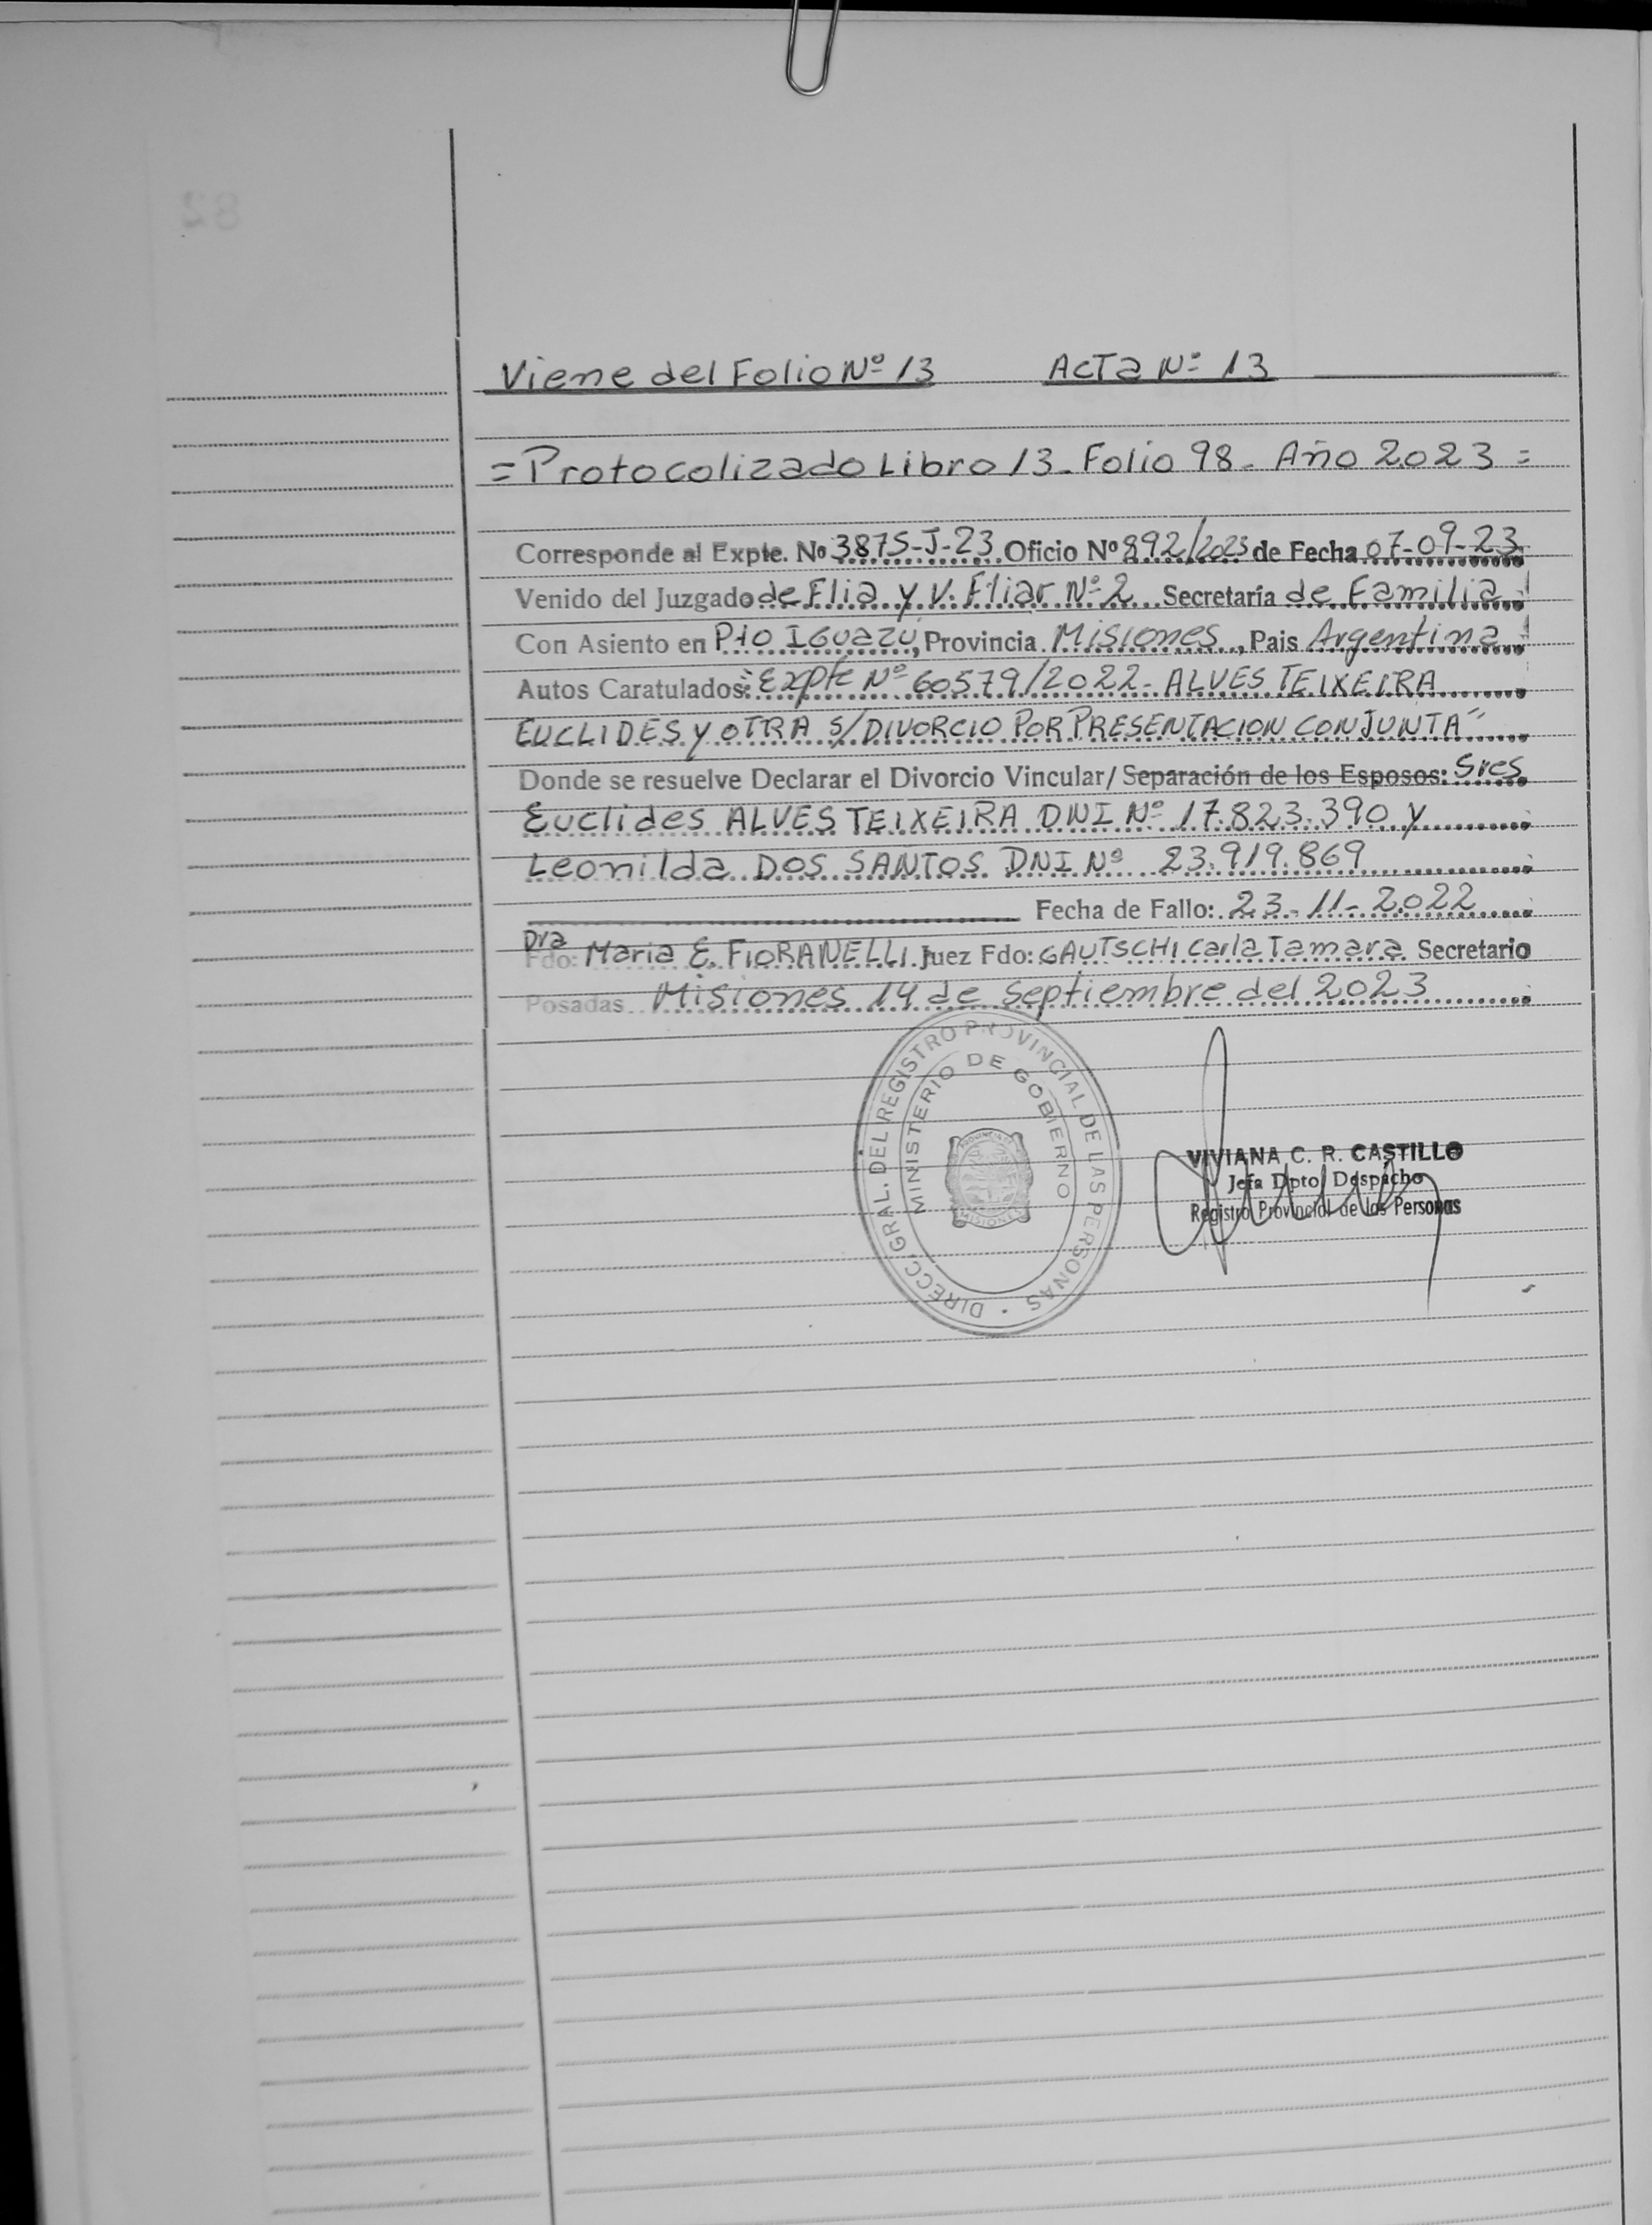 82
Viene del Folio Nº 13 ACTA Nº 13
= Protocolizado Libro 13 - Folio 98 - Año 2023 =
Corresponde al Expte. Nº 3875-J-23 Oficio Nº 892/2023 de Fecha 07-09-23
Venido del Juzgado de Flia y V. Fliar Nº 2 Secretaría de Familia
Con Asiento en Pto Iguazu, Provincia Misiones, Pais Argentina
Autos Caratulados: "Expte Nº 60579/2022 - ALVES TEIXEIRA
EUCLIDES y OTRA S/ DIVORCIO POR PRESENTACION CONJUNTA"
Donde se resuelve Declarar el Divorcio Vincular/ Separación de los Esposos: Sres
Euclides ALVES TEIXEIRA DNI Nº 17.823.390 y
Leonilda DOS SANTOS DNI Nº 23.919.869
Fecha de Fallo: 23-11-2022
Dra
Fdo: Maria E. FIORANELLI Juez Fdo: GAUTSCHI Carla Tamara Secretario
Posadas Misiones 14 de Septiembre del 2023
DIRECC. GRAL. DEL REGISTRO PROVINCIAL DE LAS PERSONAS
MINISTERIO DE GOBIERNO
PROVINCIA DE
MISIONES
VIVIANA C. R. CASTILLO
Jefa Dpto Despacho
Registro Provincial de las Personas